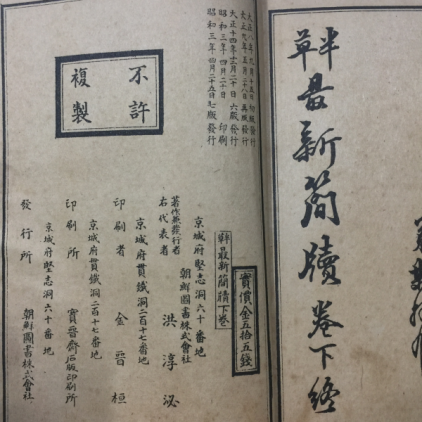 半草最新簡牘卷下終
大正十四年十二月二十日六版發行
昭和三年四月二十日印刷
昭和三年四月二十五日七版發行
不許
複製
實價金五拾五錢
半草最新簡牘下卷
京城府堅志洞六十番地
朝鮮圖書株式會社
著作兼發行者
右代表者 洪淳泌
京城府貫鐵洞二百十七番地
印刷者 金晉桓
京城府貫鐵洞二百十七番地
印刷所 寶晉齋石版印刷所
京城府堅志洞六十番地
發行所 朝鮮圖書株式會社